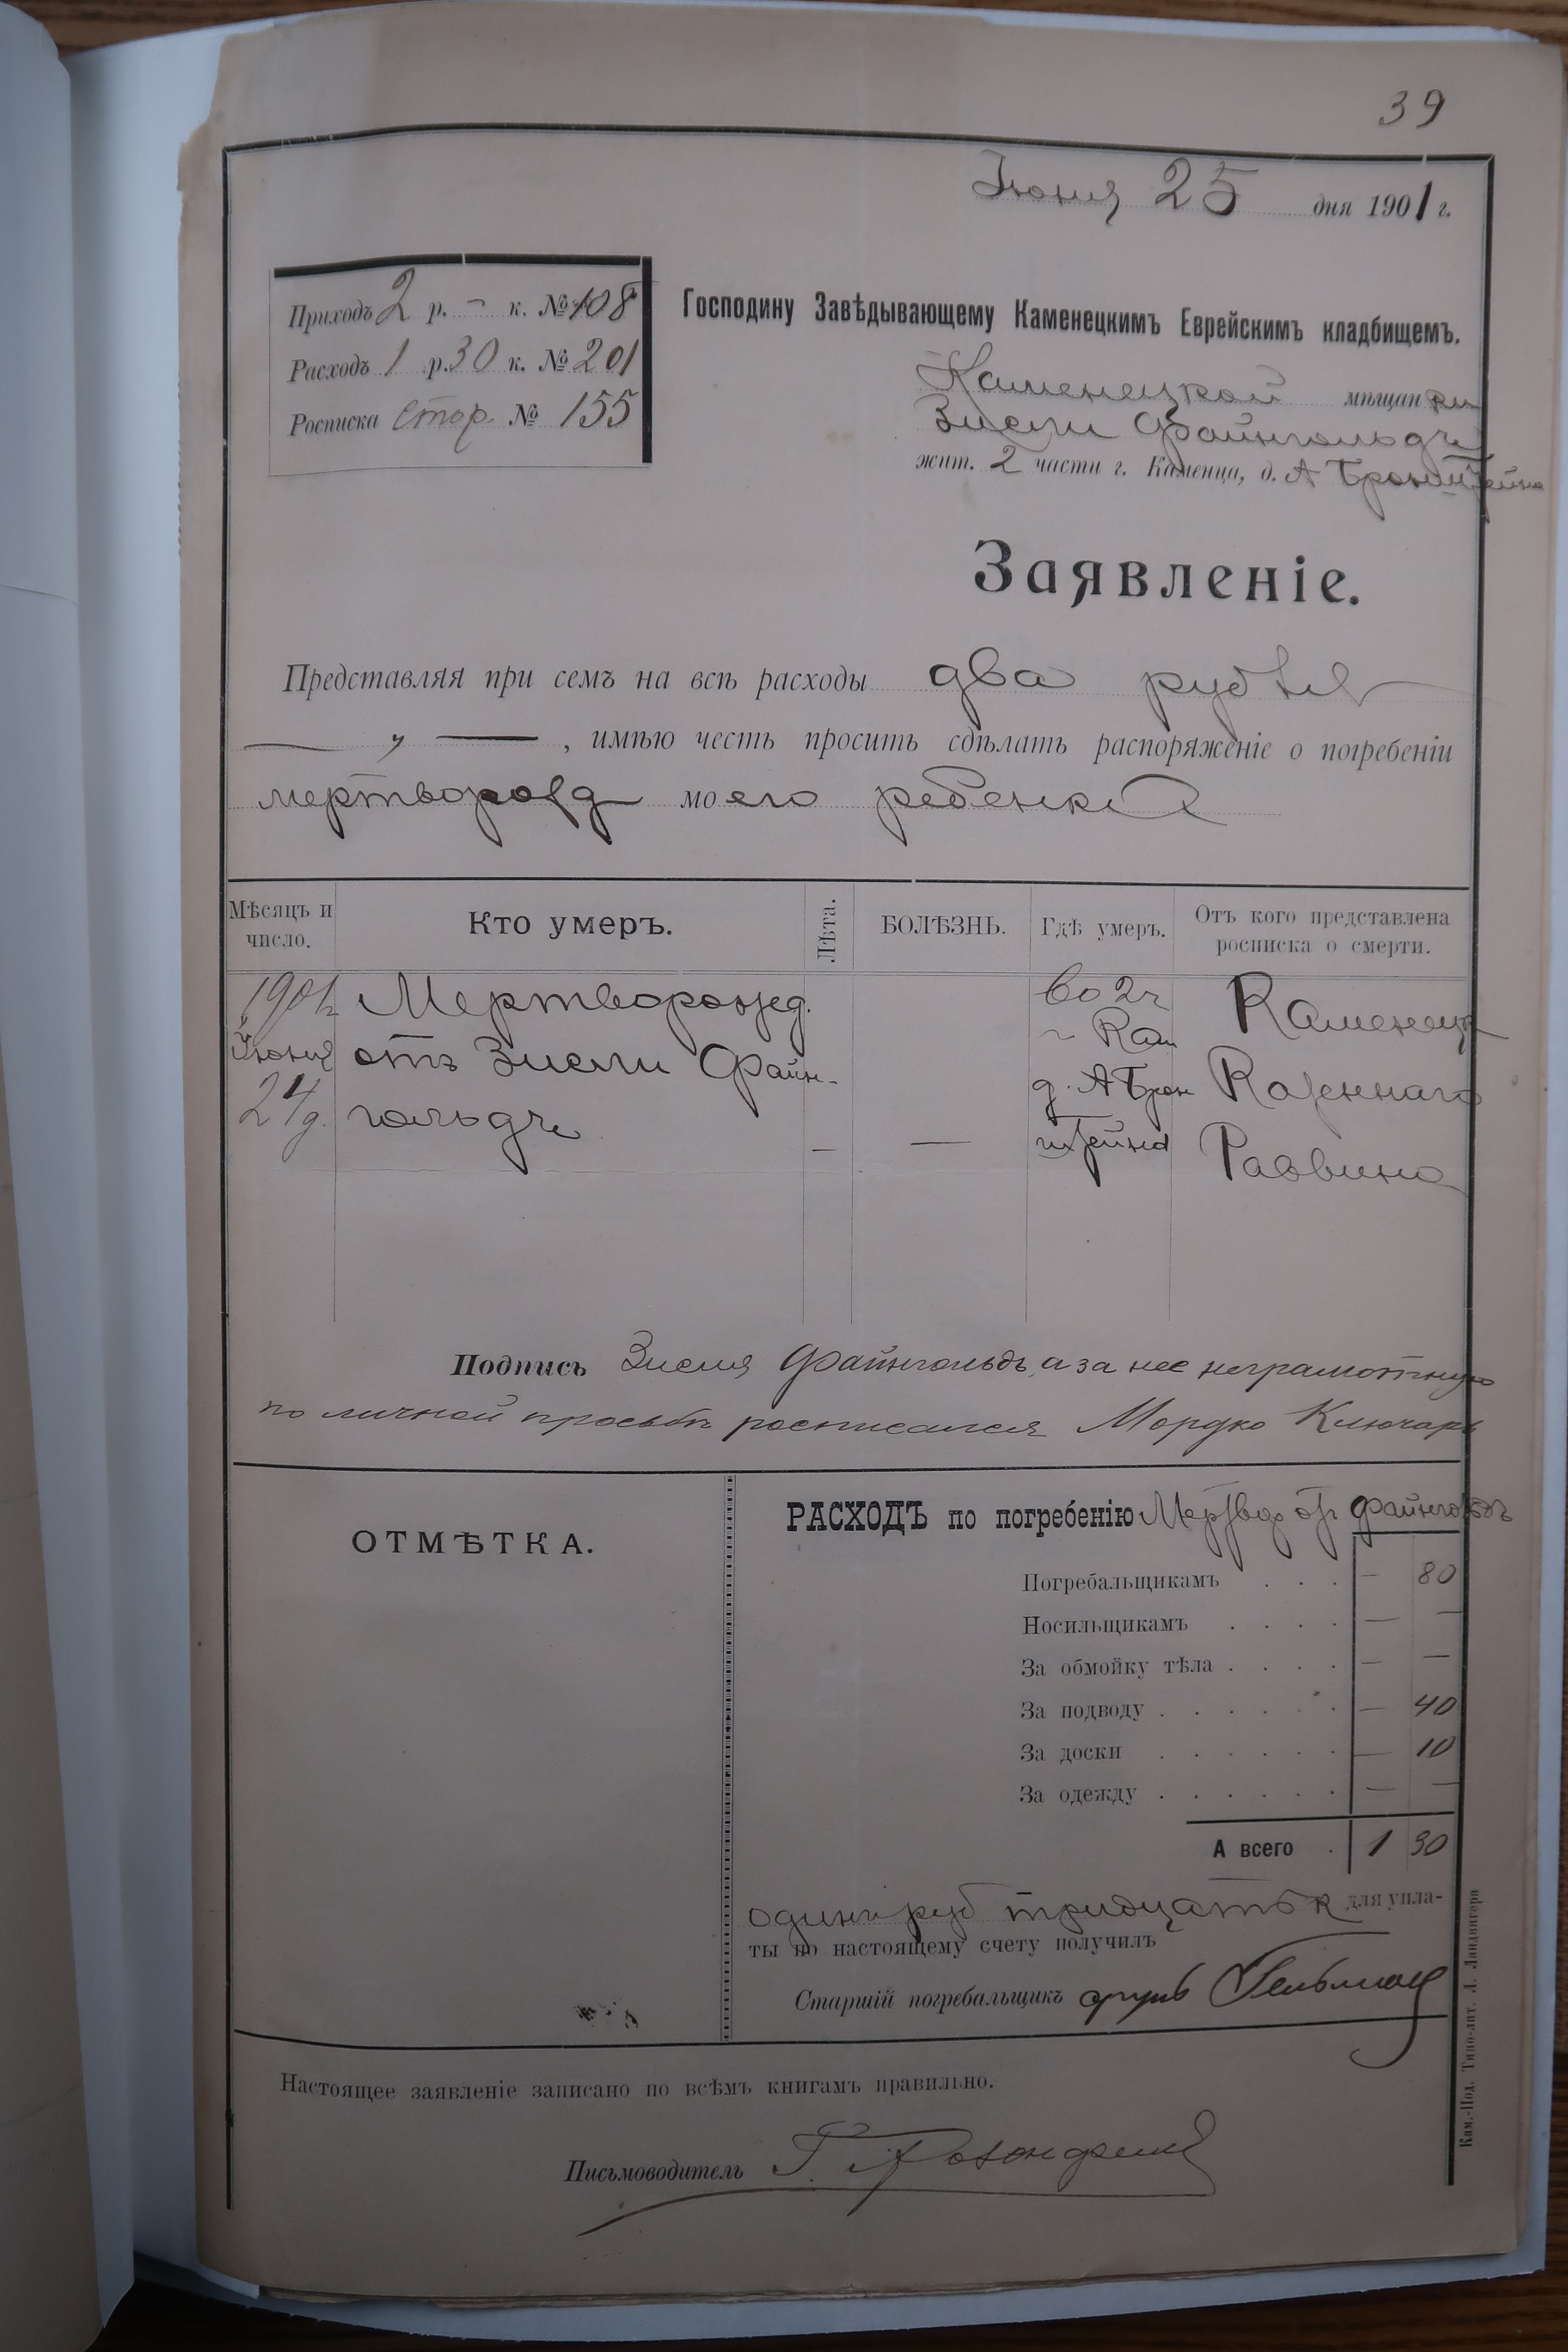 39
Июня 25 дня 1901 г.
Приходъ 2 р. – к. № 108
Расходъ 1 р. 30 к. № 201
Росписка стор. № 155
Господину Завѣдывающему Каменецкимъ Еврейскимъ кладбищемъ.
Каменецкой мѣщанки
Зисли Файнгольдъ
жит. 2 части г. Каменца, д. А Бронштейна
Заявленіе.
Представляя при семъ на всѣ расходы два рубля
— „ —, имѣю честь просить сдѣлать распоряженіе о погребеніи
мертворожд моего ребенка
Мѣсяцъ и число.
Кто умеръ.
Лѣта.
БОЛѢЗНЬ.
Гдѣ умеръ.
Отъ кого представлена росписка о смерти.
1901 г Мертворожд. во 2 ч Каменец
июня отъ Зисли Файн- г Кам Казеннаго
24 д. гольдъ — — д. А Брон Раввина
штейна
Подпись Зисля Файнгольдъ, а за нее неграмотную
по личной просьбѣ росписался Мордко Ключарь
ОТМѢТКА.
РАСХОДЪ по погребенію Мертвор от Файнгольдъ
Погребальщикамъ . . . — 80
Носильщикамъ . . . . — —
За обмойку тѣла . . . . — —
За подводу . . . . . . — 40
За доски . . . . . . — 10
За одежду . . . . . . — —
А всего . 1 30
одинъ руб тридцать к для упла-
ты по настоящему счету получилъ
Старшій погребальщикъ Гельман
Настоящее заявленіе записано по всѣмъ книгамъ правильно.
Письмоводитель Г.
Кам.-Под. Типо-лит. Л. Ландвигера